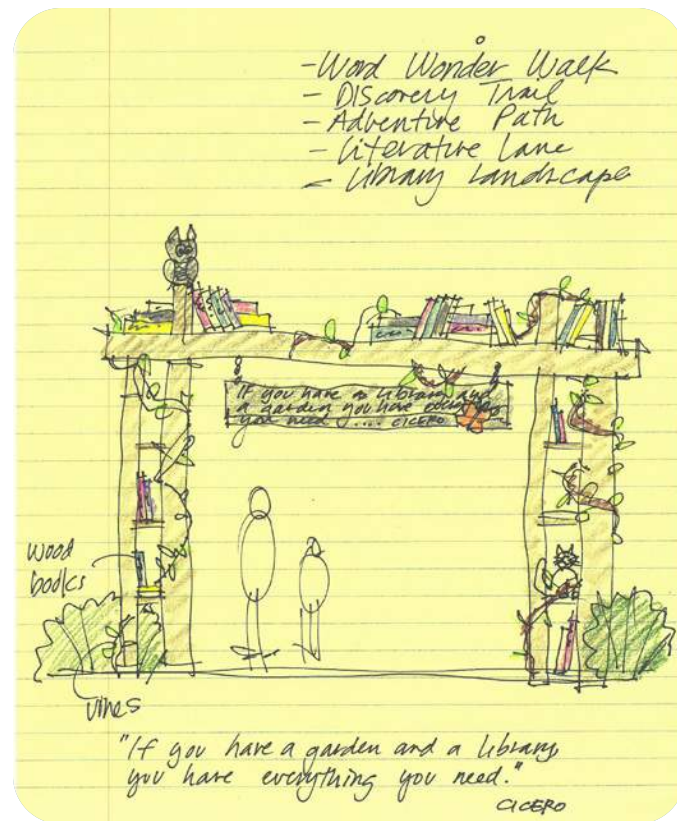 - Word Wonder Walk
- Discovery Trail
- Adventure Path
- Literature Lane
- Library Landscape
"If you have a library and
a garden you have
you need .... CICERO
wood
books
vines
"If you have a garden and a library
you have everything you need."
CICERO